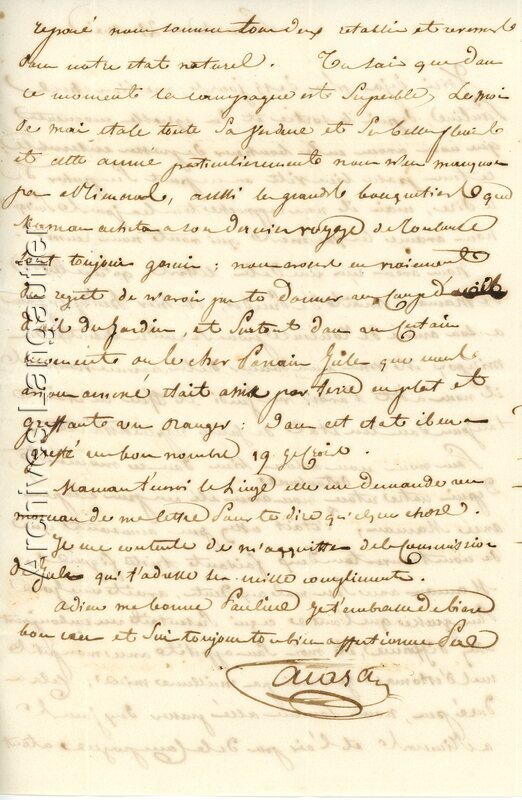 reposé nous somme tous deux retablie et revenu
dans notre etat naturel. Tu sais que dan
ce momente la campagne est Superbe, Le moi
de mai etale toute Sa verdure et Se belles fleurs
et cette année particulierement nous n'en manquon
pas aussi le grande bouquetier que
Maman acheta a son dernier voyage de Toulouse
sont toujour garni; nous avons eu vraiment
du regret de n'avoir pas te donner un coup d'
d'œil du Jardin, et Surtout dans un certain
momente ou le cher Parrain Jule que nous
avion amené etait assis par terre en plat et
greffante un oranger; dans cet etate il en a
greffé un bon nombre 19 je crois.
Maman t'envoi le linge elle me demande un
morceau de me lettre pour te dire quelque chose.
Je me contente de m'aquitter de la Commission
de Jule qui t'adresse ses mille compliments.
adieu me bonne Pauline je t'embrasse de bien
bon cœur et Suis toujour ton bien affectionné Pere
Archives Langautier